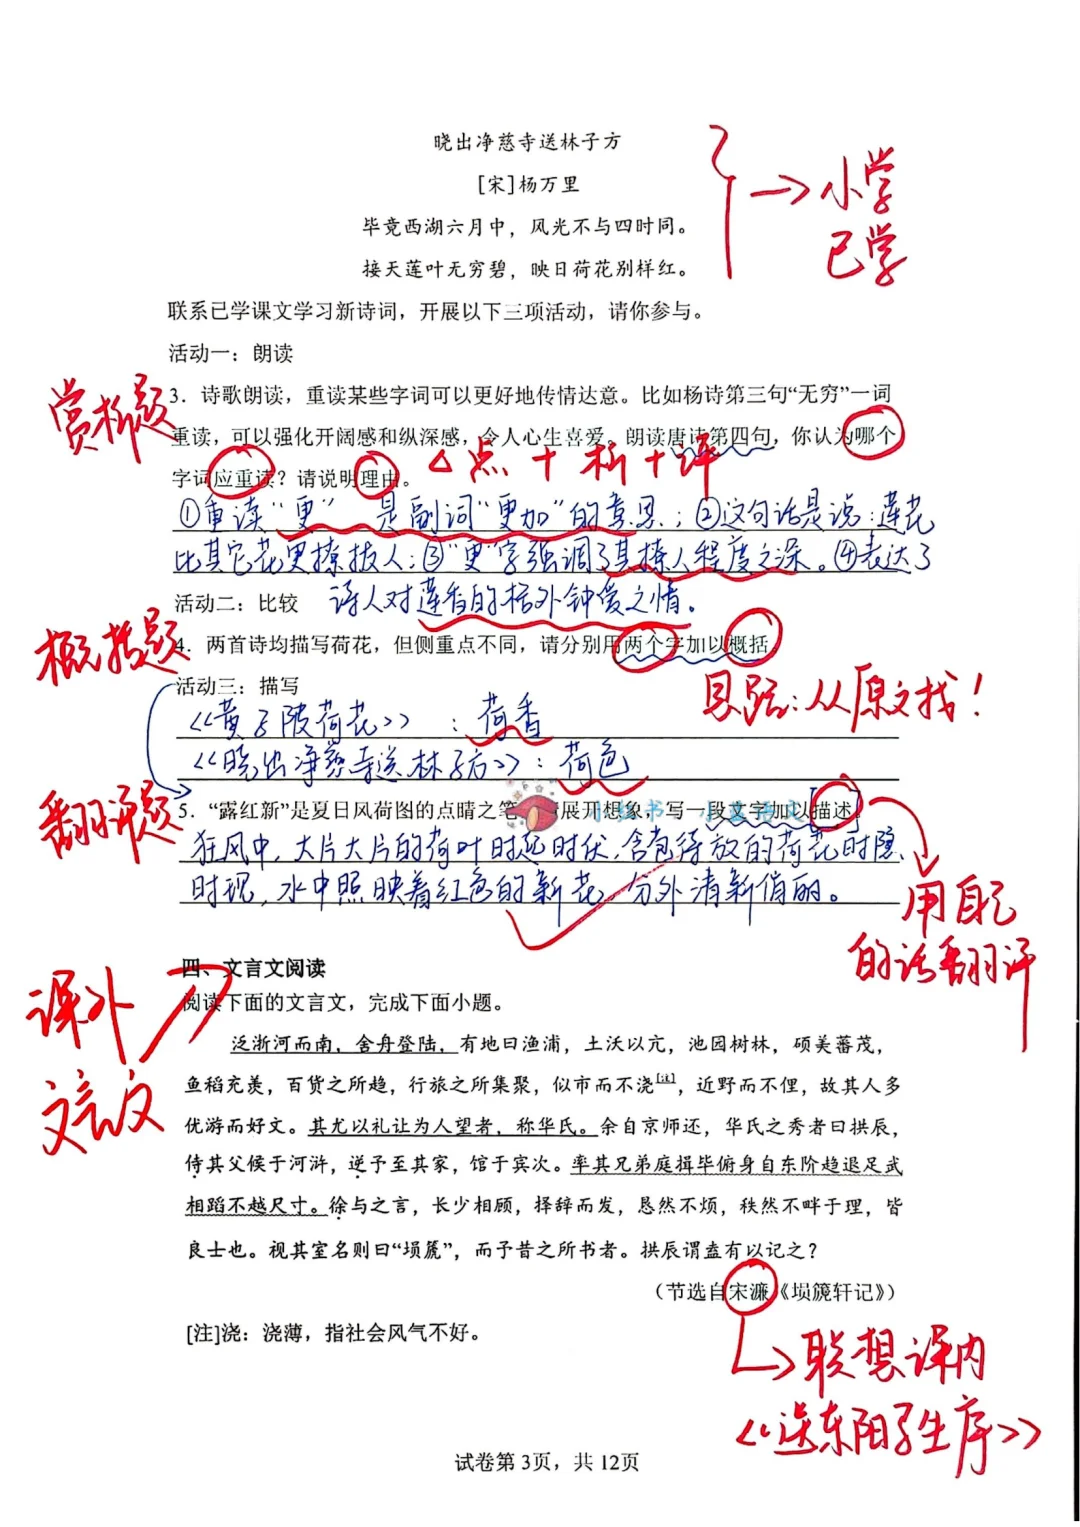 晓出净慈寺送林子方
[宋]杨万里
毕竟西湖六月中，风光不与四时同。
接天莲叶无穷碧，映日荷花别样红。
小学
已学
联系已学课文学习新诗词，开展以下三项活动，请你参与。
活动一：朗读
赏析题
3．诗歌朗读，重读某些字词可以更好地传情达意。比如杨诗第三句“无穷”一词
重读，可以强化开阔感和纵深感，令人心生喜爱。朗读唐诗第四句，你认为哪个
字词应重读？请说明理由。
点+析+评
①重读“更” 是副词“更加”的意思；②这句话是说：莲花
比其它花更撩拨人；③“更”字强调了其撩人程度之深。④表达了
诗人对莲香的格外钟爱之情。
活动二：比较
概括题
4．两首诗均描写荷花，但侧重点不同，请分别用两个字加以概括。
思路：从原文找！
活动三：描写
《黄子陂荷花》：荷香
《晓出净慈寺送林子方》：荷色
翻译题
5．“露红新”是夏日风荷图的点睛之笔，展开想象，写一段文字加以描述。
小红书
狂风中，大片大片的荷叶时起时伏，含苞待放的荷花时隐
时现，水中照映着红色的新花，分外清新俏丽。
用自己
的话翻译
课外
文言文
四、文言文阅读
阅读下面的文言文，完成下面小题。
泛浙河而南，舍舟登陆，有地曰渔浦，土沃以亢，池园树林，硕美蕃茂，
鱼稻充羡，百货之所趋，行旅之所集聚，似市而不浇[注]，近野而不俚，故其人多
优游而好文。其尤以礼让为人望者，称华氏。余自京师还，华氏之秀者曰拱辰，
侍其父候于河浒，逆予至其家，馆于宾次。率其兄弟庭揖毕俯身自东阶趋退足武
相蹈不越尺寸。徐与之言，长少相顾，择辞而发，恳然不烦，秩然不畔于理，皆
良士也。视其室名则曰“埙篪”，而予昔之所书者。拱辰谓盍有以记之？
（节选自宋濂《埙篪轩记》）
[注]浇：浇薄，指社会风气不好。
联想课内
《送东阳马生序》
试卷第3页，共12页